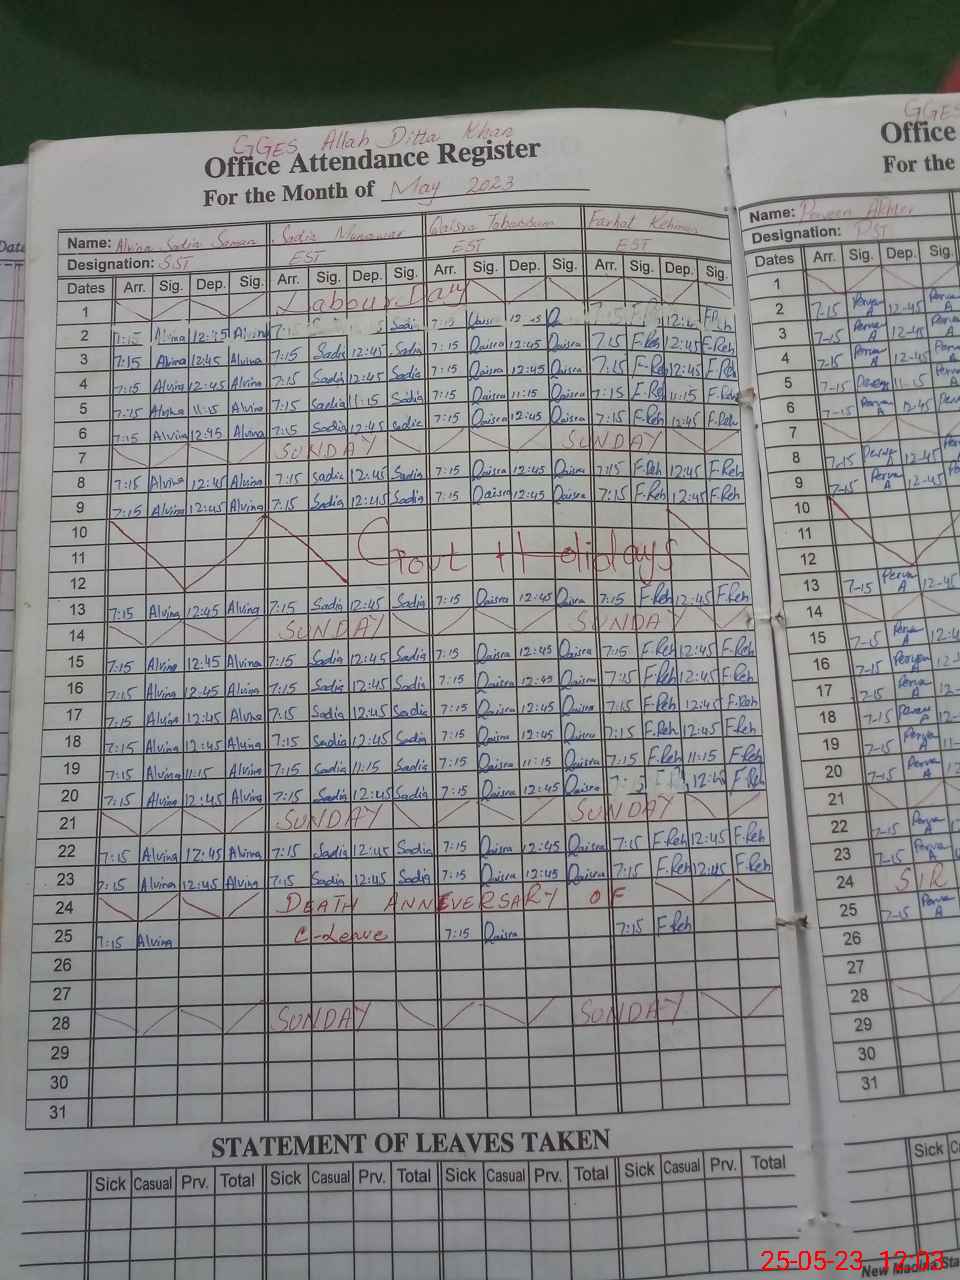 GGES Allah Ditta Khan
Office Attendance Register
For the Month of May 2023
Name: Alvina Sadia Saman Sadia Munawar Qaisra Tabassum Farhat Rehman
Designation: SST EST EST EST
Dates Arr. Sig. Dep. Sig. Arr. Sig. Dep. Sig. Arr. Sig. Dep. Sig. Arr. Sig. Dep. Sig.
1 Labour Day
2 7:15 Alvina 12:45 Alvina 7:15 Sadia 7:15 Qaisra 12:45 F.Reh
3 7:15 Alvina 12:45 Alvina 7:15 Sadia 12:45 Sadia 7:15 Qaisra 12:45 Qaisra 7:15 F.Reh 12:45 F.Reh
4 7:15 Alvina 12:45 Alvina 7:15 Sadia 12:45 Sadia 7:15 Qaisra 12:45 Qaisra 7:15 F.Reh 12:45 F.Reh
5 7:15 Alvina 11:15 Alvina 7:15 Sadia 11:15 Sadia 7:15 Qaisra 11:15 Qaisra 7:15 F.Reh 11:15 F.Reh
6 7:15 Alvina 12:45 Alvina 7:15 Sadia 12:45 Sadia 7:15 Qaisra 12:45 Qaisra 7:15 F.Reh 12:45 F.Reh
7 SUNDAY SUNDAY
8 7:15 Alvina 12:45 Alvina 7:15 Sadia 12:45 Sadia 7:15 Qaisra 12:45 Qaisra 7:15 F.Reh 12:45 F.Reh
9 7:15 Alvina 12:45 Alvina 7:15 Sadia 12:45 Sadia 7:15 Qaisra 12:45 Qaisra 7:15 F.Reh 12:45 F.Reh
10
11 Govt Holidays
12
13 7:15 Alvina 12:45 Alvina 7:15 Sadia 12:45 Sadia 7:15 Qaisra 12:45 Qaisra 7:15 F.Reh 12:45 F.Reh
14 SUNDAY SUNDAY
15 7:15 Alvina 12:45 Alvina 7:15 Sadia 12:45 Sadia 7:15 Qaisra 12:45 Qaisra 7:15 F.Reh 12:45 F.Reh
16 7:15 Alvina 12:45 Alvina 7:15 Sadia 12:45 Sadia 7:15 Qaisra 12:45 Qaisra 7:15 F.Reh 12:45 F.Reh
17 7:15 Alvina 12:45 Alvina 7:15 Sadia 12:45 Sadia 7:15 Qaisra 12:45 Qaisra 7:15 F.Reh 12:45 F.Reh
18 7:15 Alvina 12:45 Alvina 7:15 Sadia 12:45 Sadia 7:15 Qaisra 12:45 Qaisra 7:15 F.Reh 12:45 F.Reh
19 7:15 Alvina 11:15 Alvina 7:15 Sadia 11:15 Sadia 7:15 Qaisra 11:15 Qaisra 7:15 F.Reh 11:15 F.Reh
20 7:15 Alvina 12:45 Alvina 7:15 Sadia 12:45 Sadia 7:15 Qaisra 12:45 Qaisra 12:45 F.Reh
21 SUNDAY SUNDAY
22 7:15 Alvina 12:45 Alvina 7:15 Sadia 12:45 Sadia 7:15 Qaisra 12:45 Qaisra 7:15 F.Reh 12:45 F.Reh
23 7:15 Alvina 12:45 Alvina 7:15 Sadia 12:45 Sadia 7:15 Qaisra 12:45 Qaisra 7:15 F.Reh 12:45 F.Reh
24 DEATH ANNEVERSARY OF
25 7:15 Alvina C-Leave 7:15 Qaisra 7:15 F.Reh
26
27
28 SUNDAY SUNDAY
29
30
31
STATEMENT OF LEAVES TAKEN
Sick Casual Prv. Total Sick Casual Prv. Total Sick Casual Prv. Total Sick Casual Prv. Total
GGES
Office
For the
Name: Parveen Akhter
Designation: PST
Dates Arr. Sig. Dep. Sig.
1
2 7-15 12-45
3 7-15 12-45
4 7-15 12-45
5 7-15 11-15
6 7-15 12-45
7
8 7-15 12-45
9 7-15 12-45
10
11
12
13 7-15 12-45
14
15
16 7-15
17 7-15
18 7-15
19 7-15
20 7-15
21
22 7-15
23 7-15
24 SIR
25 7-15
26
27
28
29
30
31
Sick
25-05-23 12:03
New Madina